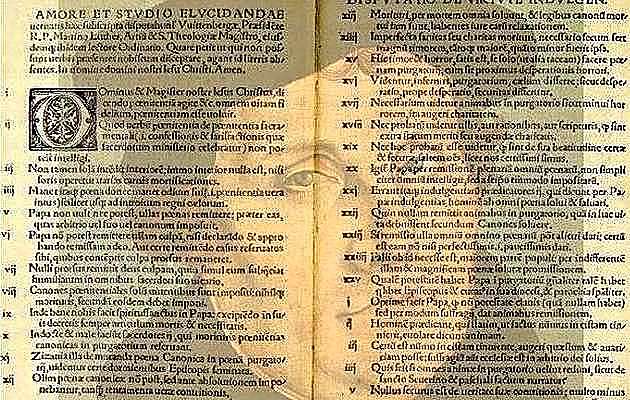 AMORE ET STVDIO ELVCIDANDAE
ueritatis hæc subscripta disputabuntur Vuittenbergæ, Præsidẽte
R. P. Martino Luther, Artiũ & S. Theologiæ Magistro, eiusdemq; ibidem lectore Ordinario. Quare petit ut qui non possunt uerbis præsentes nobiscum disceptare, agant id literis absentes. In nomine domini nostri Iesu Christi. Amen.
i Ominus & Magister noster Iesus Christus, dicendo pœnitentiã agite &c. omnem uitam fidelium, pœnitentiam esse uoluit.
ij Quod uerbũ de pœnitentia sacramentali (.i. confessionis & satisfactionis quæ sacerdotum ministerio celebratur) non potest intelligi.
iij Non tamen solã intẽdit interiorẽ: immo interior nulla est, nisi foris operetur uarias carnis mortificationes.
iiij Manet itaq; pœna donec manet odium sui (.i. pœnitentia uera intus) scilicet usq; ad introitum regni cœlorum.
v Papa non uult nec potest, ullas pœnas remittere: præter eas, quas arbitrio uel suo uel canonum imposuit.
vj Papa nõ potest remittere ullam culpã, nisi declarãdo & approbando remissam a deo. Aut certe remittẽdo casus reseruatos sibi, quibus contẽptis culpa prorsus remaneret.
vij Nulli prorsus remittit deus culpam, quin simul eum subijciat humiliatum in omnibus sacerdoti suo uicario.
viij Canones pœnitentiales solũ uiuentibus sunt impositi: nihilq; morituris, secundũ eosdem debet imponi.
ix Inde bene nobis facit spiritussanctus in Papa: excipiẽdo in suis decretis semper articulum mortis & necessitatis.
x Indocte & male faciũt sacerdotes ij, qui morituris pœnitẽtias canonicas in purgatorium reseruant.
xj Zizania illa de mutanda pœna Canonica in pœnã purgatorij, uidentur certe dormientibus Episcopis seminata.
xij Olim pœnæ canonicæ nõ post, sed ante absolutionem imponebantur, tanq̃ tentamenta ueræ contritionis.
DISPVTATIO DE VIRTVTE INDVLGEN.
xiij Morituri, per mortem omnia soluunt, & legibus canonũ mortui iam sunt, habentes iure earũ relaxationem.
xiiij Imperfecta sanitas seu charitas morituri, necessario secum fert magnum timorem, tãtoq; maiorẽ, quãto minor fuerit ipsa.
xv Hic timor & horror, satis est, se solo (ut alia taceam) facere pœnam purgatorij, cum sit proximus desperationis horrori.
xvj Videntur, infernus, purgatorium, cælum differre: sicut desperatio, prope desperatio, securitas differunt.
xvij Necessarium uidetur animabus in purgatorio sicut minui horrorem, ita augeri charitatem.
xviij Nec probatũ uidetur ullis, aut rationibus, aut scripturis, q̃ sint extra statum meriti seu augendæ charitatis.
xix Nec hoc probatũ esse uidetur, q̃ sint de sua beatitudine certæ & securæ, saltem oẽs, licet nos certissimi simus.
xx Igit̃ Papa per remissionẽ plenariã omniũ pœnarũ, non simpliciter omniũ intelligit, sed a seipso tantũmodo impositarũ.
xxj Errant itaq; indulgentiarũ prædicatores ij, qui dicunt per Papæ indulgentias, hominẽ ab omni pœna solui & saluari.
xxij Quin nullam remittit animabus in purgatorio, quã in hac uita debuissent secundum Canones soluere.
xxiij Si remissio ulla omniũ omnino pœnarũ põt alicui dari; certũ est eam nõ nisi perfectissimis .i. paucissimis dari.
xxiiij Falli ob id necesse est, maiorem partẽ populi: per indifferentẽ illam & magnificam pœnæ solutæ promissionem.
xxv Qualẽ potestatẽ habet Papa ĩ purgatoriũ generaliter, talẽ habet quilibet Episcopus & curatus in sua diocesi & parochia specialiter.
i Optime facit Papa, q̃ nõ potestate clauis (quã nullam habet) sed per modum suffragij, dat animabus remissionem.
ij Hominẽ prædicant, qui statim, ut iactus nũmus in cistam tinnierit, euolare dicunt animam.
iij Certũ est nũmo in cistam tinniente, augeri quæstum & auaritiam posse: suffragiũ aũt ecclesiæ est in arbitrio dei solius.
iiij Quis scit si omnes animæ in purgatorio uelint redimi, sicut de sancto Seuerino & Paschali factum narratur.
v Nullus securus est de ueritate suæ contritionis, multominus